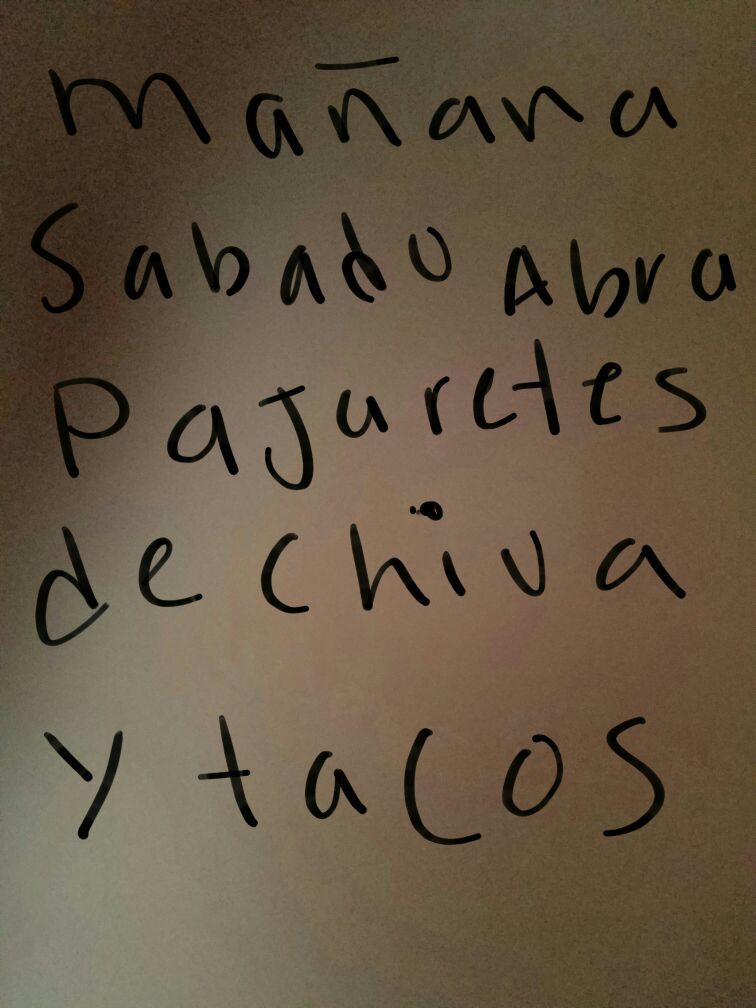 Mañana
Sabado Abra
Pajaretes
de chiva
y tacos